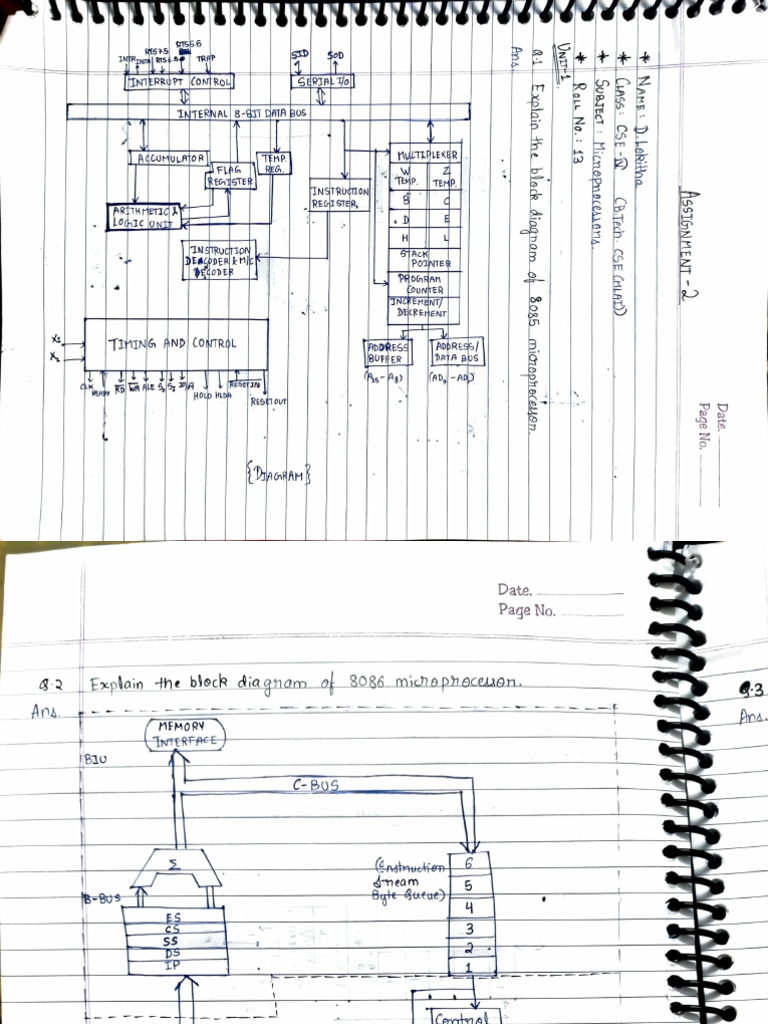 ASSIGNMENT-2
Date.
Page No.
* NAME: D. Lokitha
* CLASS: CSE-IV CBTech. CSE(MLAI))
* SUBJECT: Microprocessors.
* ROLL No.: 13
UNIT-1
Q.1 Explain the block diagram of 8085 microprocessor.
Ans.
INTR INTA RST5.5 RST6.5 RST7.5 TRAP
SID SOD
INTERRUPT CONTROL
SERIAL I/O
INTERNAL 8-BIT DATA BUS
ACCUMULATOR
TEMP. REG.
FLAG REGISTER
INSTRUCTION REGISTER
MULTIPLEXER
W TEMP. Z TEMP.
B C
D E
H L
STACK POINTER
PROGRAM COUNTER
INCREMENT/ DECREMENT
ARITHMETIC & LOGIC UNIT
INSTRUCTION DECODER & M/C DECODER
X1
X2
TIMING AND CONTROL
ADDRESS BUFFER
ADDRESS/ DATA BUS
(A15 - A8) (AD0 - AD7)
CLK READY RD WR ALE S0 S1 IO/M HOLD HLDA RESET IN RESET OUT
{DIAGRAM}
Date.
Page No.
Q.2 Explain the block diagram of 8086 microprocessor.
Ans.
Q.3
Ans.
MEMORY
INTERFACE
BIU
C-BUS
Σ
(Instruction
Stream
Byte Queue)
6
5
4
3
2
1
B-BUS
ES
CS
SS
DS
IP
Control